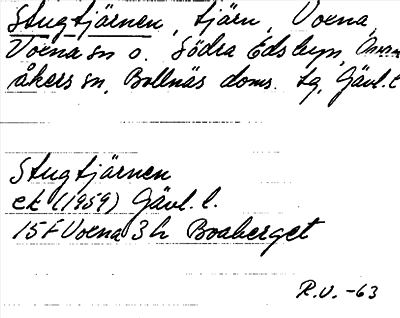 Stugtjärnen, tjärn, Voxna,
Voxna sn o. Södra Edsbyn, Ovan-
åkers sn, Bollnäs doms. tg, Gävl. l
Stugtjärnen
ek (1959) Gävl. l.
15 F Voxna 3 h Boaberget
R.U. -63